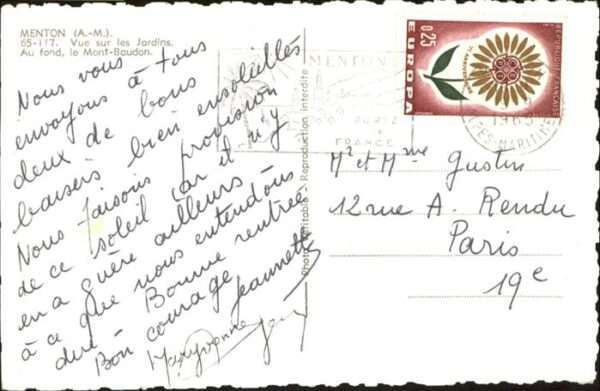 MENTON (A.-M.)
65-117. Vue sur les Jardins.
Au fond, le Mont-Baudon.
Nous vous
envoyons à tous
deux de bons
baisers bien ensoleillés
Nous faisons provision
de ce soleil car il n'y
en a guère ailleurs
à ce que nous entendons
dire. Bonne rentrée
Bon courage
Jeannette
Maryvonne
Photo véritable - Reproduction interdite
MENTON
FRANCE
0,25
EUROPA
REPUBLIQUE FRANÇAISE
1965
ALPES-MARITIMES
Mr et Mme Gustin
12 rue A. Rendu
Paris
19e